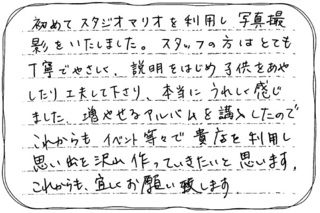 初めてスタジオマリオを利用し写真撮
影をいたしました。スタッフの方はとても
丁寧でやさしく、説明をはじめ子供をあや
したり工夫して下さり、本当にうれしく感じ
ました。増やせるアルバムを購入したので
これからもイベント等々で貴店を利用し
思い出を沢山作っていきたいと思います。
これからも、宜しくお願い致します。